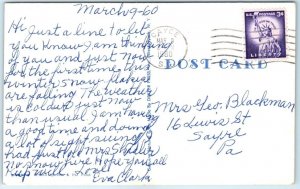 March-9-60
Hi Just a line to let
you know I am thinking
of you and just now
for the first time this
winter snow flakes
are falling The weather
is colder just now
than usual I am having
a good time and doing
a lot of sight seeing
had just Mrs
now here Hope you all
Keep well. Love
Eva Clark
U.S. POSTAGE 3¢
LIBERTY
POST CARD
Mrs Geo. Blackman
16 Lewis St
Sayre
Pa